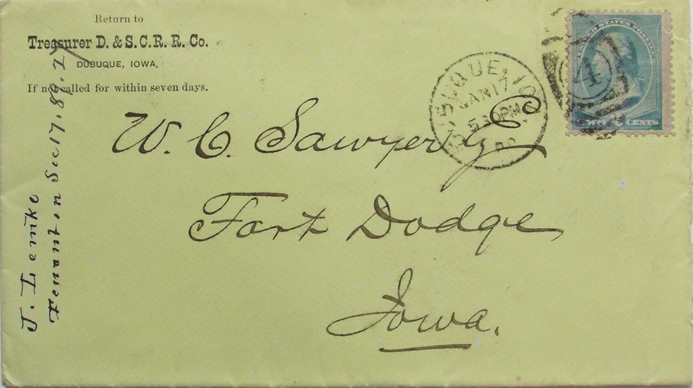 Return to
Treasurer D. & S. C. R. R. Co.
DUBUQUE, IOWA,
If not called for within seven days.
DUBUQUE, IO
JAN 17
5 30 PM
UNITED STATES POSTAGE
4
TWO CENTS
W. C. Sawyer Esq
Fort Dodge
Iowa.
J. Lemke
Tenant on Sec 17. 89. 27